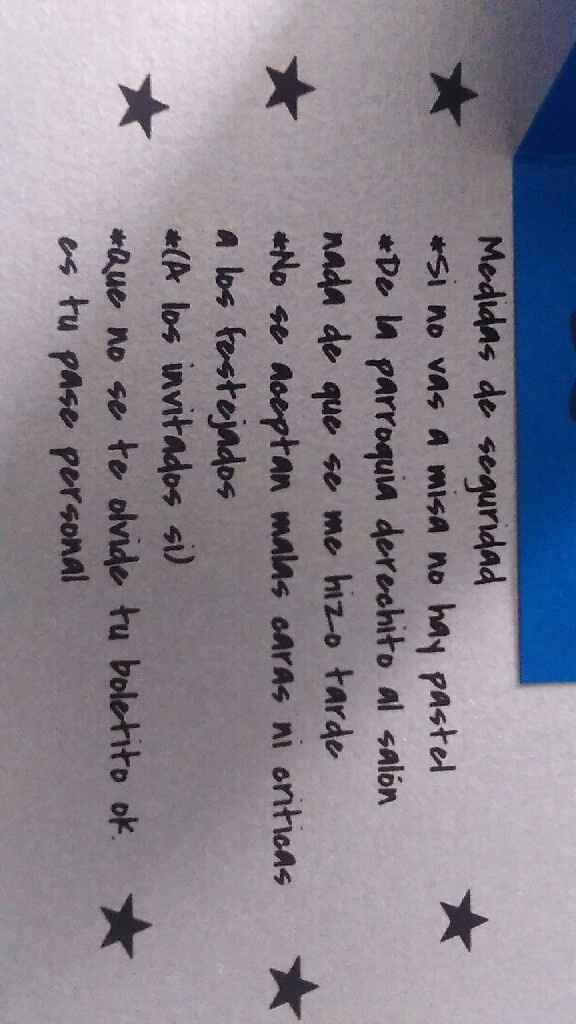 Medidas de seguridad
*Si no vas a misa no hay pastel
*De la parroquia derechito al salón
nada de que se me hizo tarde
*No se aceptan malas caras ni criticas
a los festejados
*(A los invitados si)
*Que no se te olvide tu boletito ok.
es tu pase personal